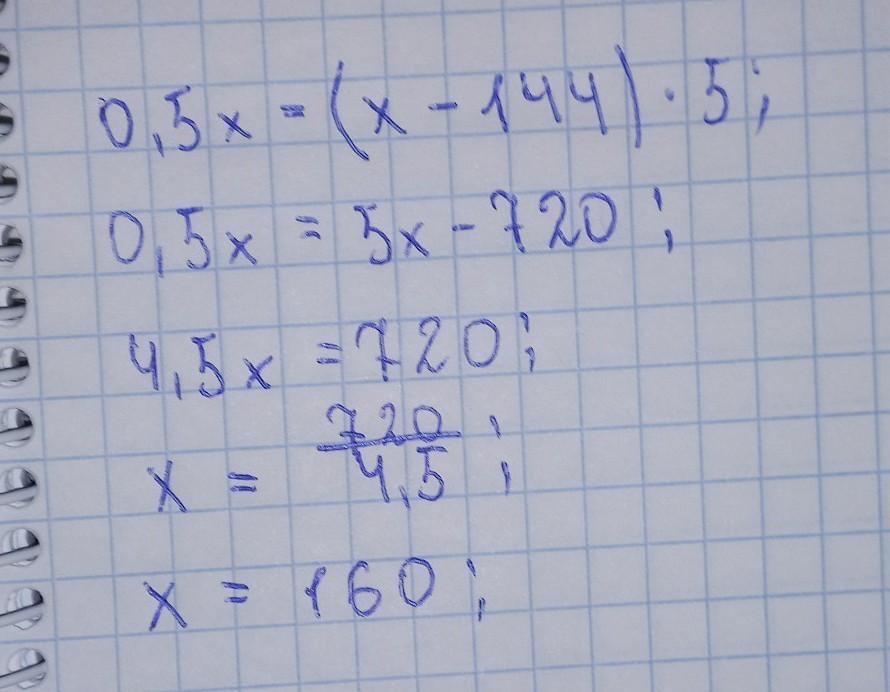 0,5x = (x - 144) · 5;
0,5x = 5x - 720;
4,5x = 720;
x = 720/4,5;
x = 160;